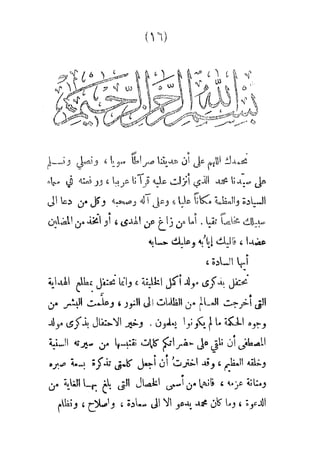 (١٦)
بسم الله الرحمن الرحيم
نحمدك اللهم على أن هديتنا صراطاً سويا ، ونصلي ونسلم
على سيّدنا محمد الذي أنزلت عليه قرآنا عربيا ، ورفعته في سماء
السيادة والعظمة مكاناً عليا ، وعلى آله وصحبه وكل من دعا الى
سبيلك مخلصاً تقيا . أما من زاغ عن الهدى ، أو اتخذ من المضلين
عضدا ، فاليك إيابه وعليك حسابه
أيها السادة ،
نحتفل بذكرى مولد أكمل الخليقة ، وانما نحتفل بمطلع الهداية
التى أخرجت العـالم من الظلمات الى النور ، وعلّمت البشر من
وجوه الحكمة ما لم يكونوا يعلمون . وخير الاحتفال بذكرى مولد
المصطفى أن نلقي على حضراتكم كلمات نقتبسها من سيرته السنية
وخلقه العظيم ، وقد اخترت أن أجعل كلمتى تذكرة بسعة صبره
ومتانة عزمه ، فانهما من أسمى الخصال التى بلغ بهـا الغاية من
الدعوة ، وما كان محمد يدعو الا الى سعادة ، واصلاح ، ونظام